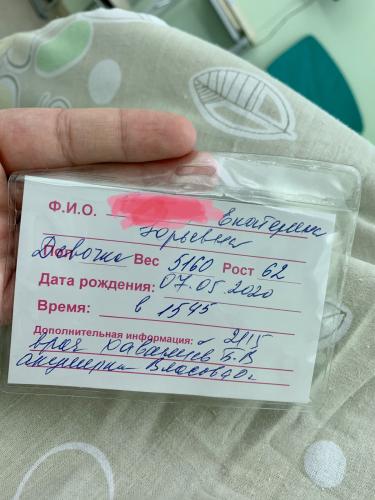 Ф.И.О. Екатерины
Юрьевны
Пол Девочка Вес 5160 Рост 62
Дата рождения: 07.05 2020
Время: в 1545
Дополнительная информация: 2115
врач Б.В
акушерка Власова О.